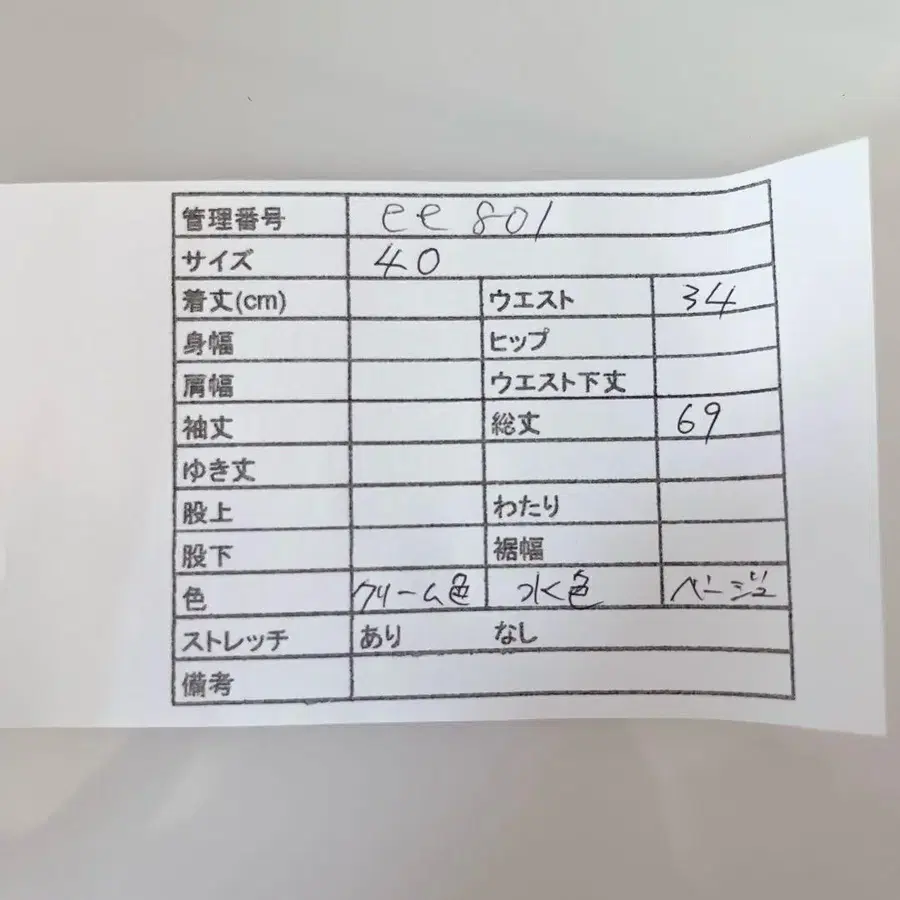 管理番号 ee 801
サイズ 40
着丈(cm) ウエスト 34
身幅 ヒップ
肩幅 ウエスト下丈
袖丈 総丈 69
ゆき丈
股上 わたり
股下 裾幅
色 クリーム色 水色 ベージュ
ストレッチ あり なし
備考